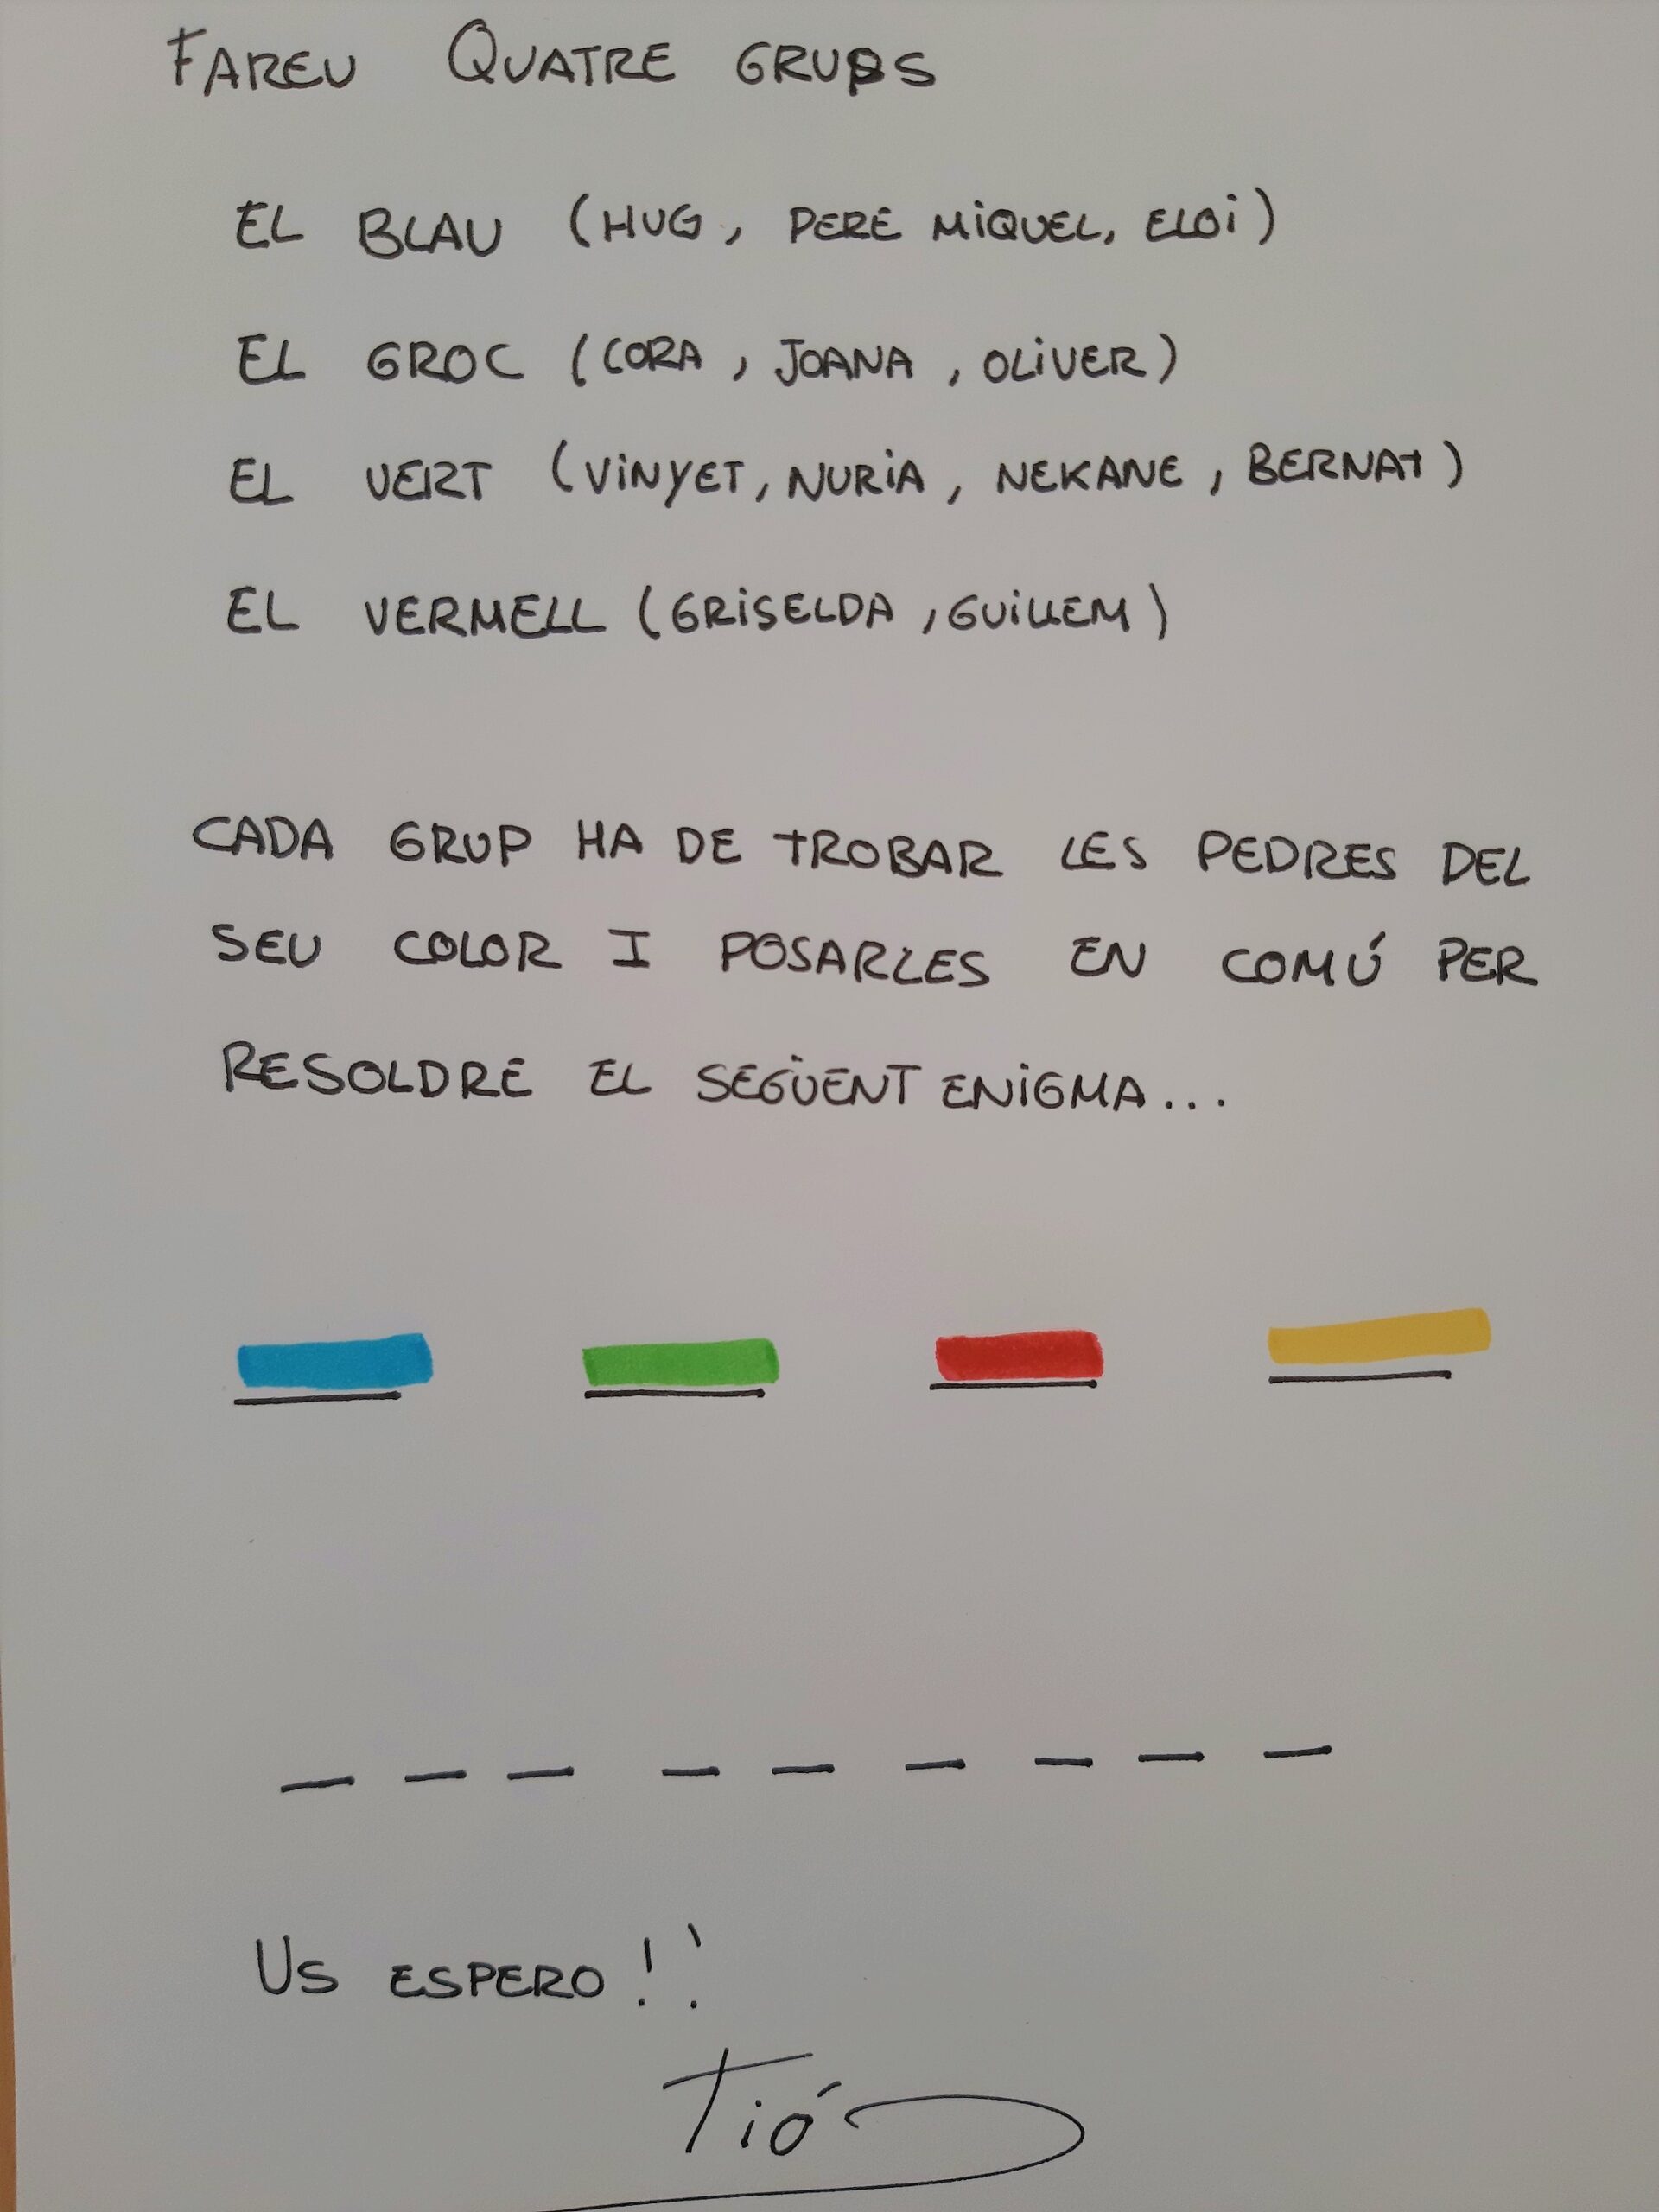 FAREU QUATRE GRUPS
EL BLAU (HUG, PERE MIQUEL, ELOI)
EL GROC (CORA, JOANA, OLIVER)
EL VERT (VINYET, NURIA, NEKANE, BERNAT)
EL VERMELL (GRISELDA, GUILLEM)
CADA GRUP HA DE TROBAR LES PEDRES DEL
SEU COLOR I POSARLES EN COMÚ PER
RESOLDRE EL SEGÜENT ENIGMA...
US ESPERO!!
Tió